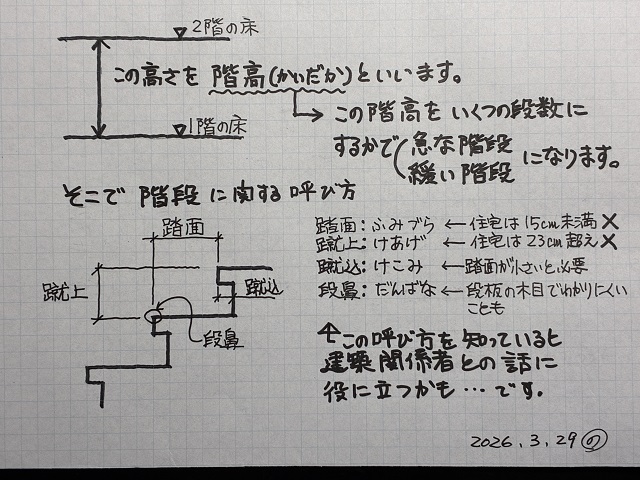 ▽2階の床
この高さを 階高(かいだか)といいます。
→ この階高を いくつの段数に
するかで(急な階段
緩い階段 になります。
▽1階の床
そこで 階段 に関する 呼び方
踏面
蹴上
蹴込
段鼻
踏面：ふみづら ← 住宅は 15cm未満 ×
蹴上：けあげ ← 住宅は 23cm超え ×
蹴込：けこみ ← 踏面が小さいと必要
段鼻：だんばな ← 段板の木目でわかりにくい
ことも
↑この呼び方を 知っていると
建築関係者との話に
役に立つかも…です。
2026.3.29 の